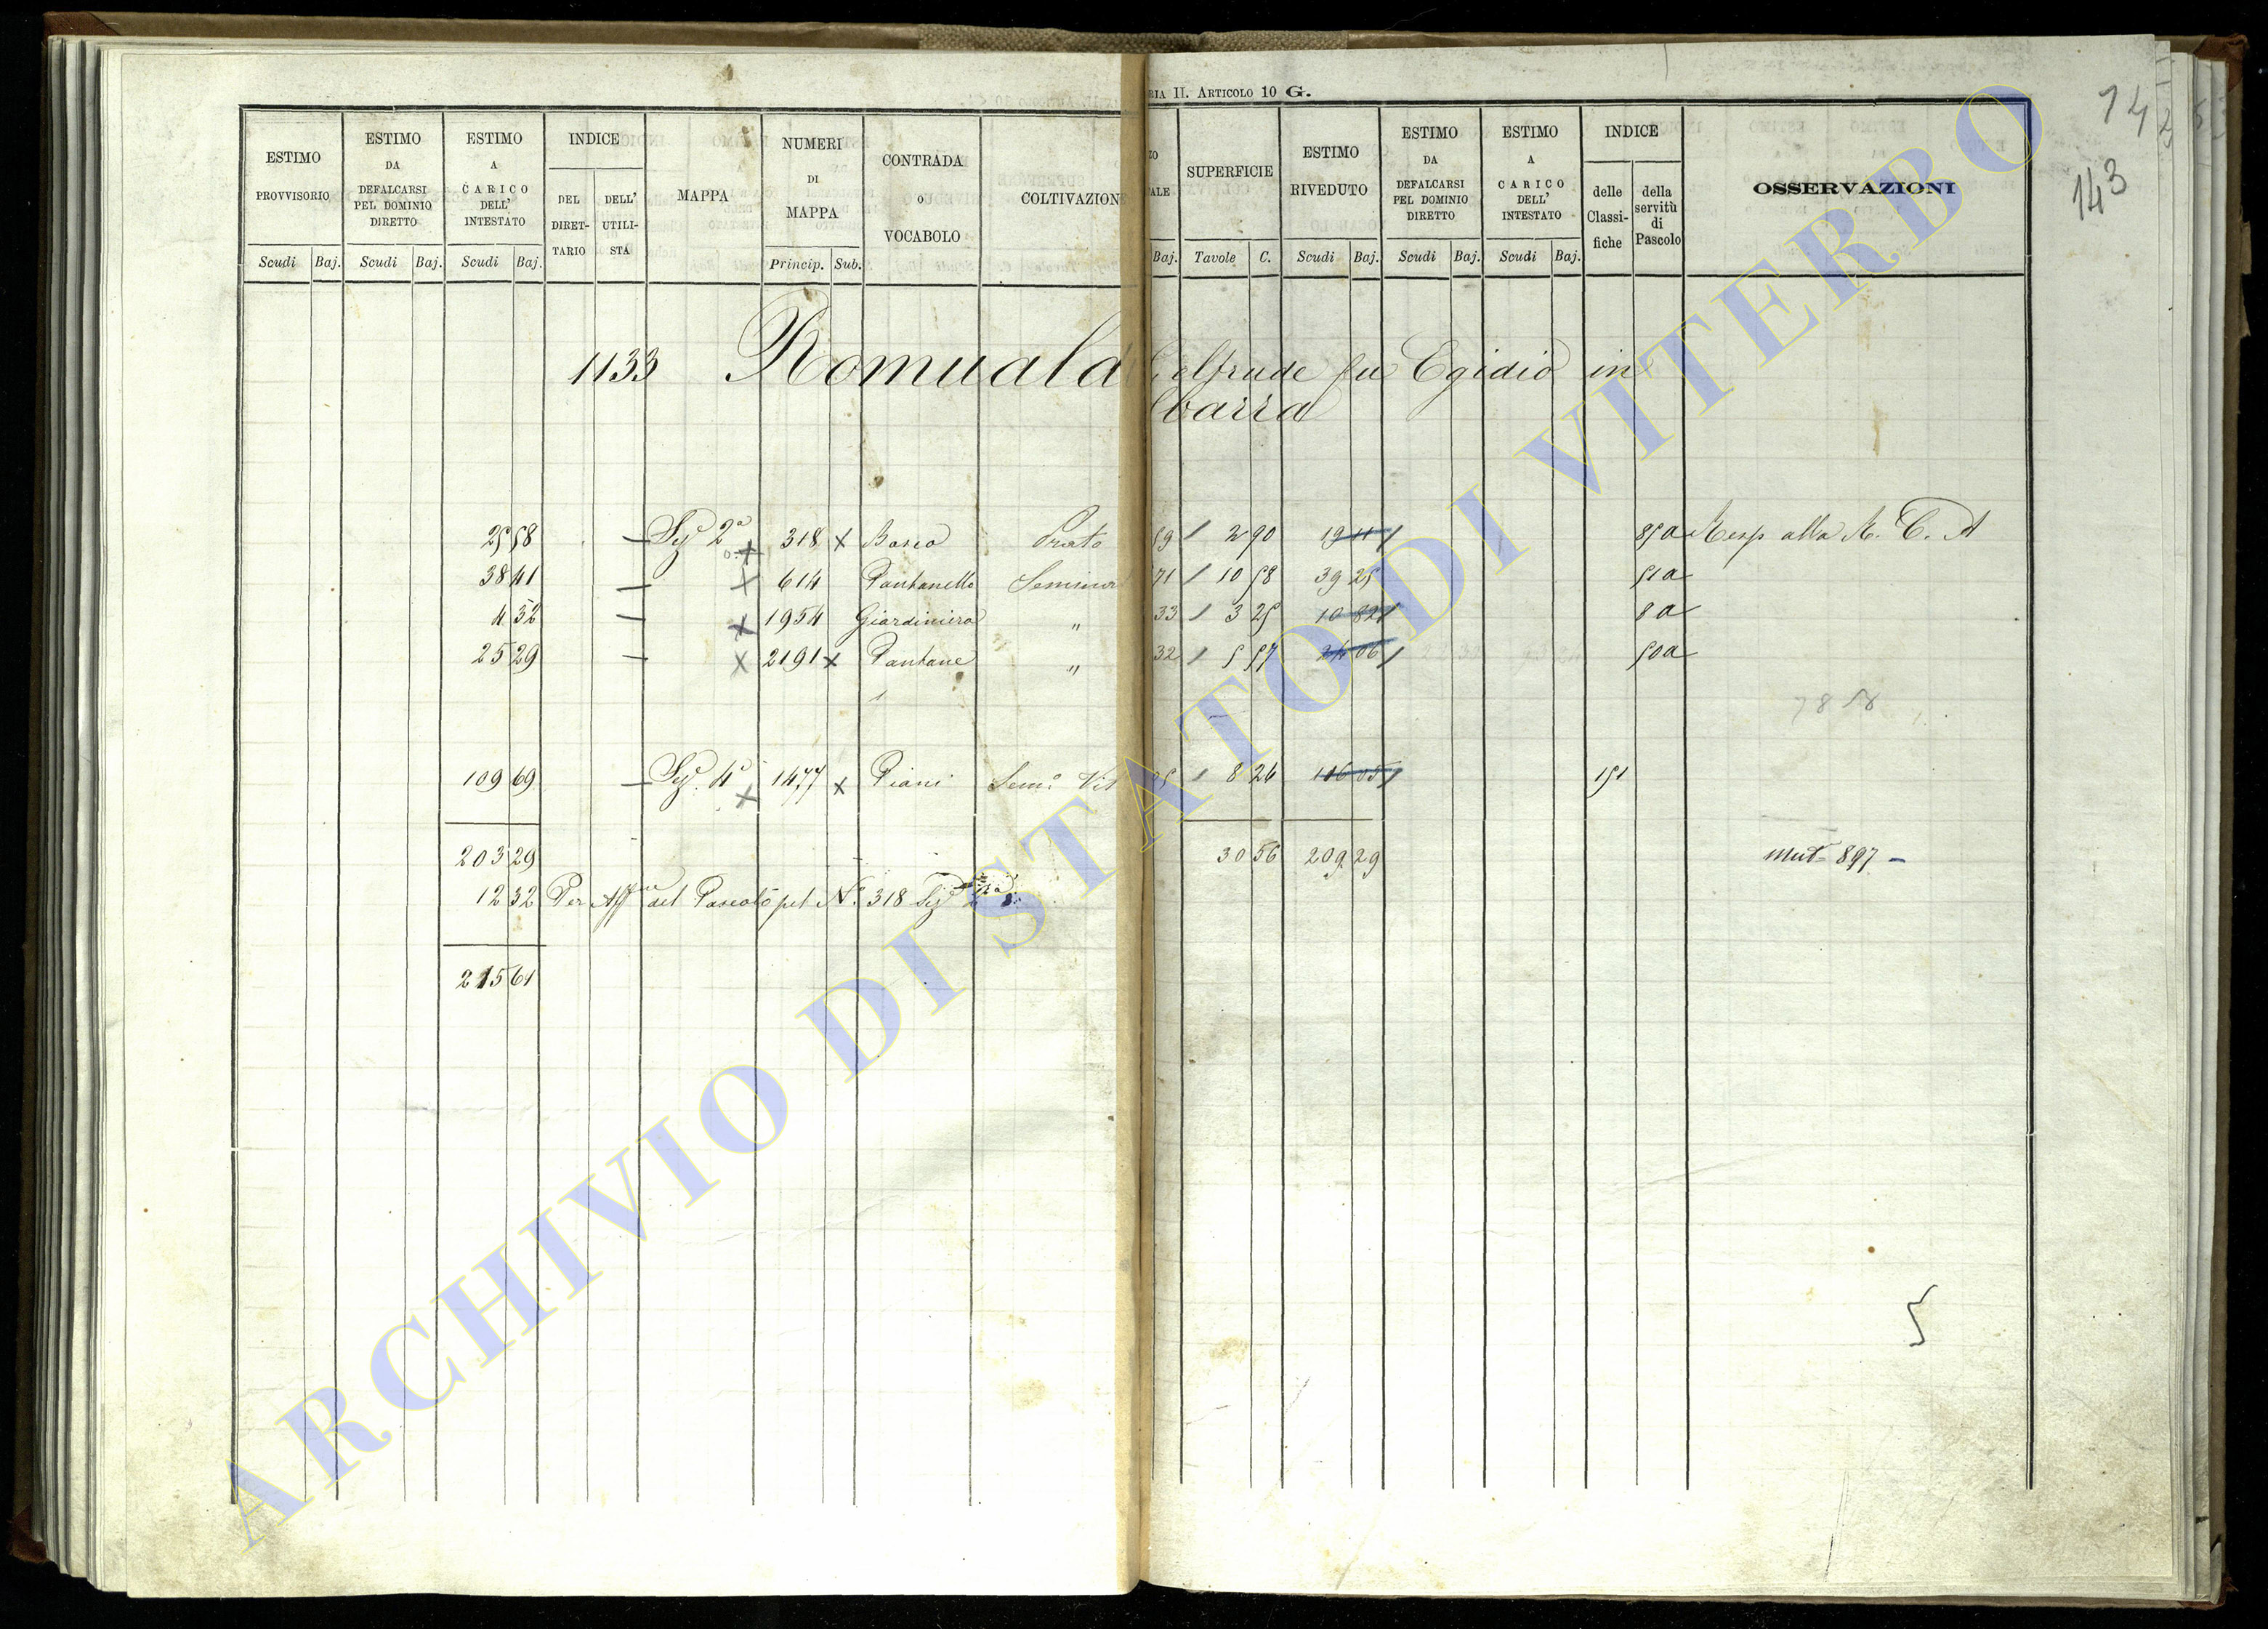 RIA II. ARTICOLO 10 G.
14
143
ESTIMO PROVVISORIO
Scudi Baj.
ESTIMO DA DEFALCARSI PEL DOMINIO DIRETTO
Scudi Baj.
ESTIMO A CARICO DELL' INTESTATO
Scudi Baj.
INDICE
DEL DIRET-TARIO
DELL' UTILI-STA
MAPPA
NUMERI DI MAPPA
Princip. Sub.
CONTRADA O VOCABOLO
COLTIVAZION
ZO
ALE
Baj.
SUPERFICIE
Tavole C.
ESTIMO RIVEDUTO
Scudi Baj.
ESTIMO DA DEFALCARSI PEL DOMINIO DIRETTO
Scudi Baj.
ESTIMO A CARICO DELL' INTESTATO
Scudi Baj.
INDICE
delle Classi-fiche
della servitù di Pascolo
OSSERVAZIONI
1133 Romuald eltrude fu Egidio in
barra
25 58 Sez 2a 318 x Bosco Prato 59 2 90 19 11 850 Resp alla R. C. A
38 41 x 614 Pantanello Seminat 71 10 58 39 25 51a
4 32 x 1954 Giardiniera " 33 3 25 10 82 8a
25 29 x 2191 x Pantane " 32 5 57 24 06 50a
78 58
109 69 Sez. 4a x 1477 x Piani Semo Vit 8 26 116 05 151
203 29 30 56 209 29 Mut 897
12 32 Per Affne del Pascolo pel No 318 Sez
215 61
5
ARCHIVIO DI STATO DI VITERBO